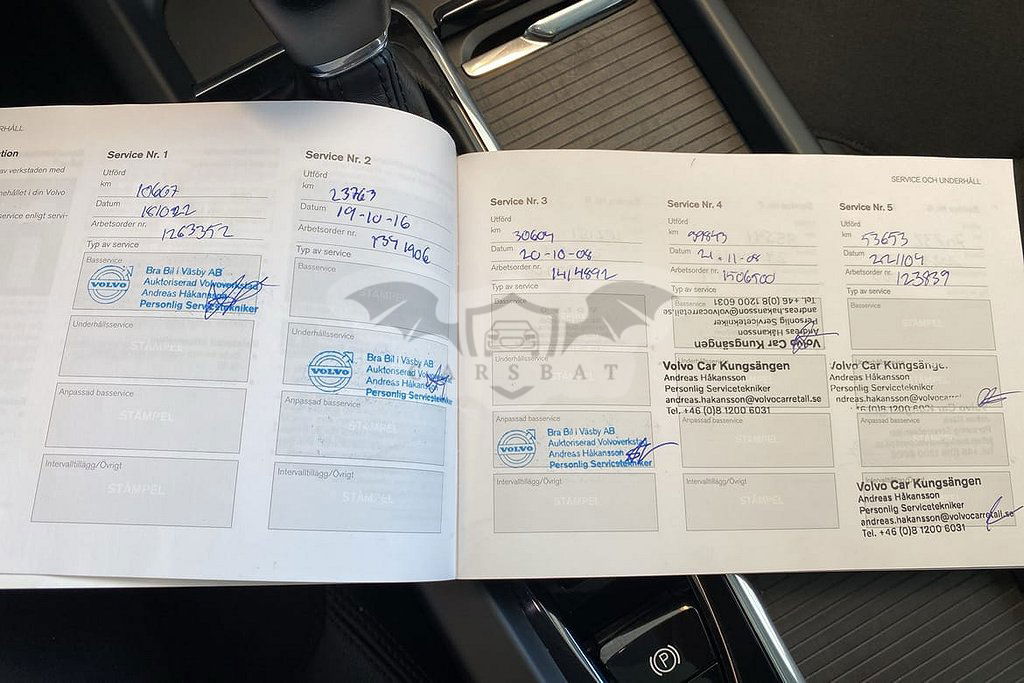 RHÅLL
tion
av verkstaden med
nehållet i din Volvo
service enligt servi-
Service Nr. 1
Utförd
km 10607
Datum 181022
Arbetsorder nr. 1263352
Typ av service
Basservice
VOLVO
Bra Bil i Väsby AB
Auktoriserad Volvoverkstad
Andreas Håkansson
Personlig Servicetekniker
Underhållsservice
STÄMPEL
Anpassad basservice
STÄMPEL
Intervalltillägg/Övrigt
STÄMPEL
Service Nr. 2
Utförd
km 23763
Datum 19-10-16
Arbetsorder nr. 1341906
Typ av service
Basservice
STÄMPEL
Underhållsservice
VOLVO
Bra Bil i Väsby AB
Auktoriserad
Andreas Håkansson
Personlig Servicetekniker
Anpassad basservice
STÄMPEL
Intervalltillägg/Övrigt
STÄMPEL
SERVICE OCH UNDERHÅLL
Service Nr. 3
Utförd
km 30604
Datum 20-10-08
Arbetsorder nr. 1414892
Typ av service
Basservice
Underhållsservice
STÄMPEL
Anpassad basservice
VOLVO
Bra Bil i Väsby AB
Auktoriserad Volvoverkstad
Andreas Håkansson
Personlig Servicetekniker
Intervalltillägg/Övrigt
STÄMPEL
Service Nr. 4
Utförd
km
Datum 21-11-08
Arbetsorder nr. 1506500
Typ av service
Basservice
Volvo Car Kungsängen
Andreas Håkansson
Personlig Servicetekniker
andreas.hakansson@volvocarretail.se
Tel. +46 (0)8 1200 6031
Underhållsservice
Volvo Car Kungsängen
Andreas Håkansson
Personlig Servicetekniker
andreas.hakansson@volvocarretail.se
Tel. +46 (0)8 1200 6031
Anpassad basservice
STÄMPEL
Intervalltillägg/Övrigt
STÄMPEL
Service Nr. 5
Utförd
km 53653
Datum 221104
Arbetsorder nr. 123839
Typ av service
Basservice
STÄMPEL
Volvo Car Kungsängen
Andreas Håkansson
Personlig Servicetekniker
andreas.hakansson@volvocarretail.se
Anpassad basservice
STÄMPEL
Volvo Car Kungsängen
Andreas Håkansson
Personlig Servicetekniker
andreas.hakansson@volvocarretail.se
Tel. +46 (0)8 1200 6031
CARSBAT
P